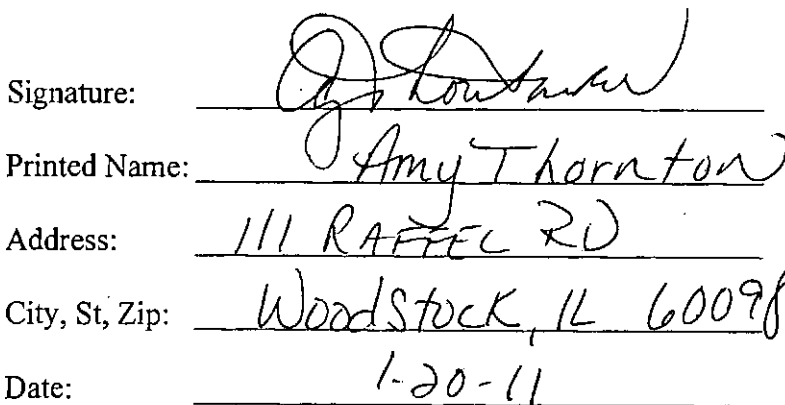 Signature:
Printed Name: Amy Thornton
Address: 111 RAFFEL RD
City, St, Zip: Woodstock, IL 60098
Date: 1-20-11